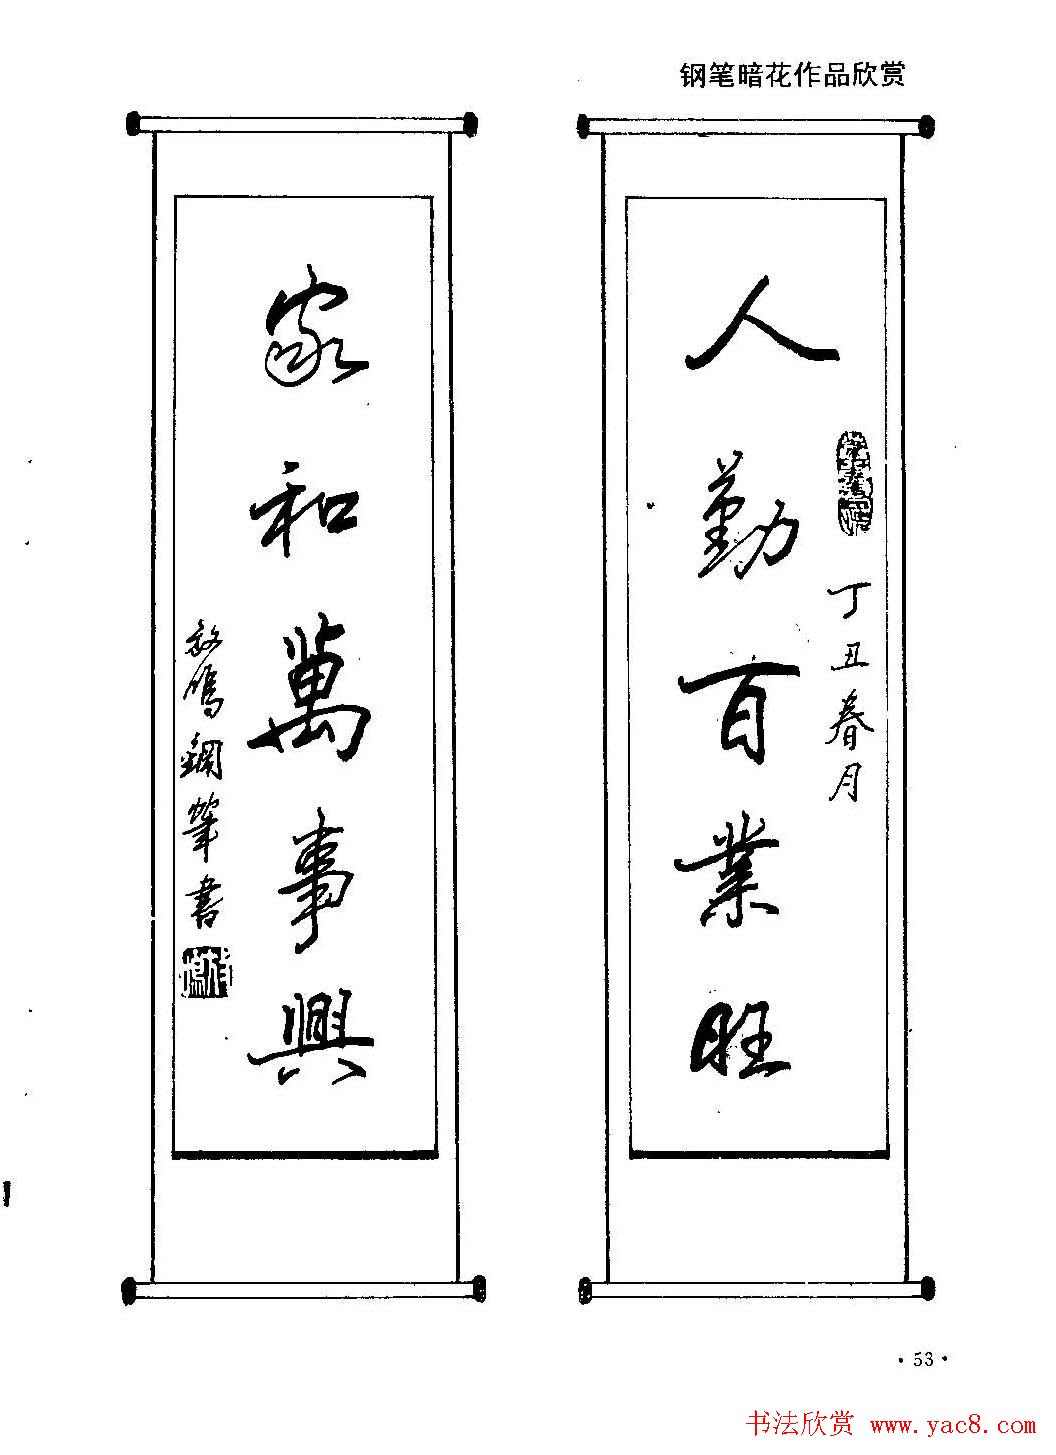 钢笔暗花作品欣赏
人勤百业旺
丁丑春月
家和萬事興
鋼筆書
·53·
书法欣赏 www.yac8.com